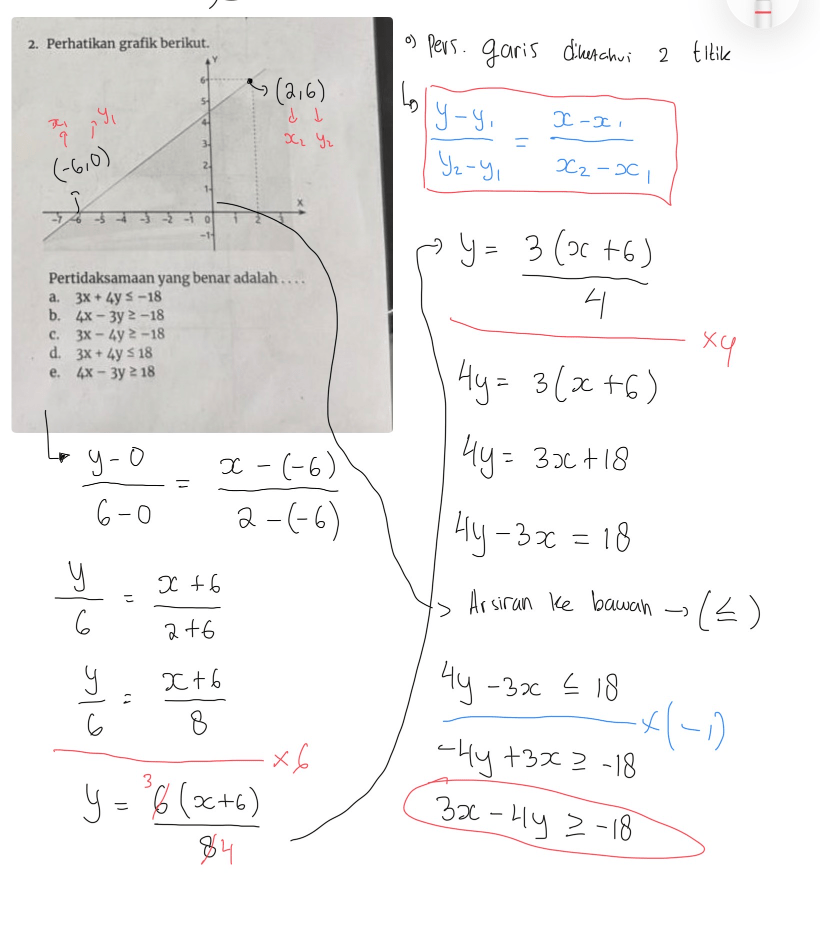 2. Perhatikan grafik berikut.
Y
6
5
4
3
2
1
-1
-7 -6 -5 -4 -3 -2 -1 0 1 2 3
X
(2,6)
x₂ y₂
x₁ y₁
(-6,0)
Pertidaksamaan yang benar adalah . . . .
a. 3x + 4y ≤ −18
b. 4x − 3y ≥ −18
c. 3x − 4y ≥ −18
d. 3x + 4y ≤ 18
e. 4x − 3y ≥ 18
(y-0)/(6-0) = (x-(-6))/(2-(-6))
y/6 = (x+6)/(2+6)
y/6 = (x+6)/8
×6
y = 6(x+6)/8
3
4
o) Pers. garis diketahui 2 titik
(y-y₁)/(y₂-y₁) = (x-x₁)/(x₂-x₁)
y = 3(x+6)/4
×4
4y = 3(x+6)
4y = 3x+18
4y-3x = 18
> Arsiran ke bawah → (≤)
4y-3x ≤ 18
×(-1)
-4y+3x ≥ -18
3x-4y ≥ -18